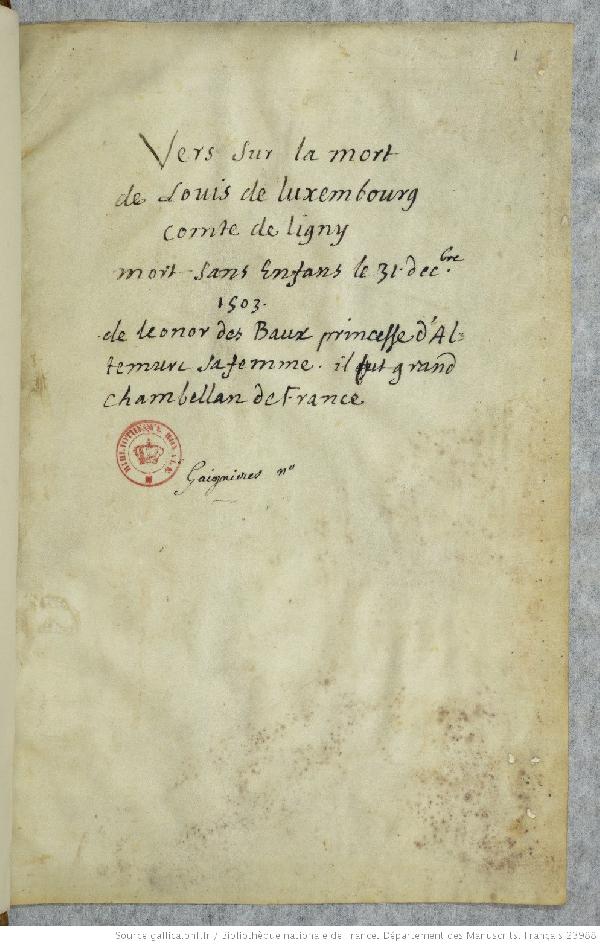 1
Vers sur la mort
de Louis de luxembourg
comte de ligny
mort sans Enfans le 31. decbre.
1503.
de leonor des Baux princesse d'Al=
temure sa femme. il fut grand
chambellan de France
BIBLIOTHEQUE ROYALE
Gaignieres no
Source gallica.bnf.fr / Bibliothèque nationale de France. Département des Manuscrits. Français 23988